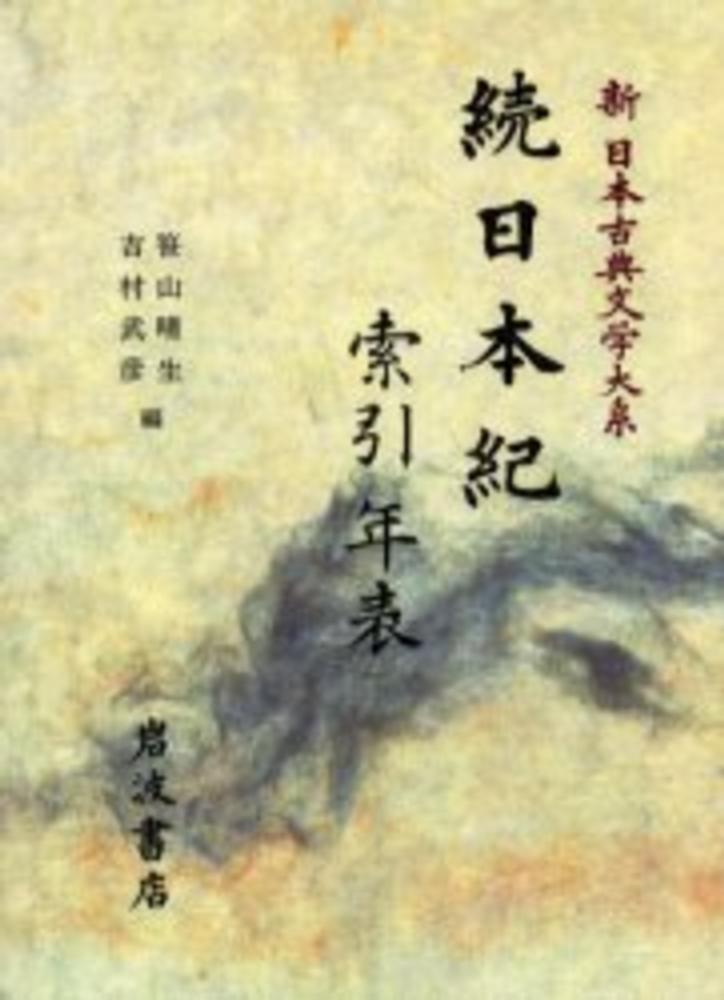 新日本古典文学大系
続日本紀
索引年表
笹山晴生
吉村武彦
編
岩波書店